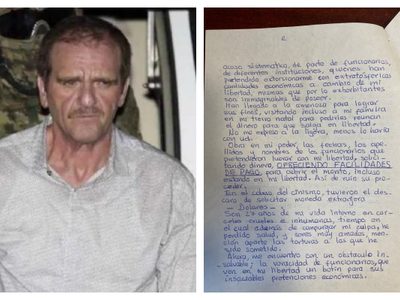 2
acoso sistemático, de parte de funcionarios,
de diferentes instituciones, quiénes han
pretendido extorsionarme con estratosféricas
cantidades económicas a cambio de mi
libertad, mismas que por lo exhorbitantes
son inimaginables de poseer.
Han llegado a la amenaza para lograr
sus fines, visitando incluso a mi familia
en mi tierra natal para pedirles reúnan
el dinero para que salga en libertad.
No me expreso a la ligera, menos lo haría
con ud.
Obra en mi poder, las fechas, los ape-
llidos y nombres de los funcionarios que
pretendieron lucrar con mi libertad, solici-
tando dinero, OFRECIENDO FACILIDADES
DE PAGO, para cubrir el monto,
estando en mi libertad. Así de ruin su pro-
ceder.
En el colmo del cinismo, tuvieron el des-
caro de solicitar moneda extranjera
- Dolares -
Son 27 años de mi vida interno en cár-
celes crueles e inhumanas, tiempo en
el cual además de compurgar mi culpa, he
perdido salud, y seres muy amados, men-
ción aparte las torturas a las que he
sido sometido.
Ahora, me encuentro con un obstáculo in-
salvable: la voracidad de funcionarios, que
ven en mi libertad un botín para sus
insaciables pretenciones económicas.